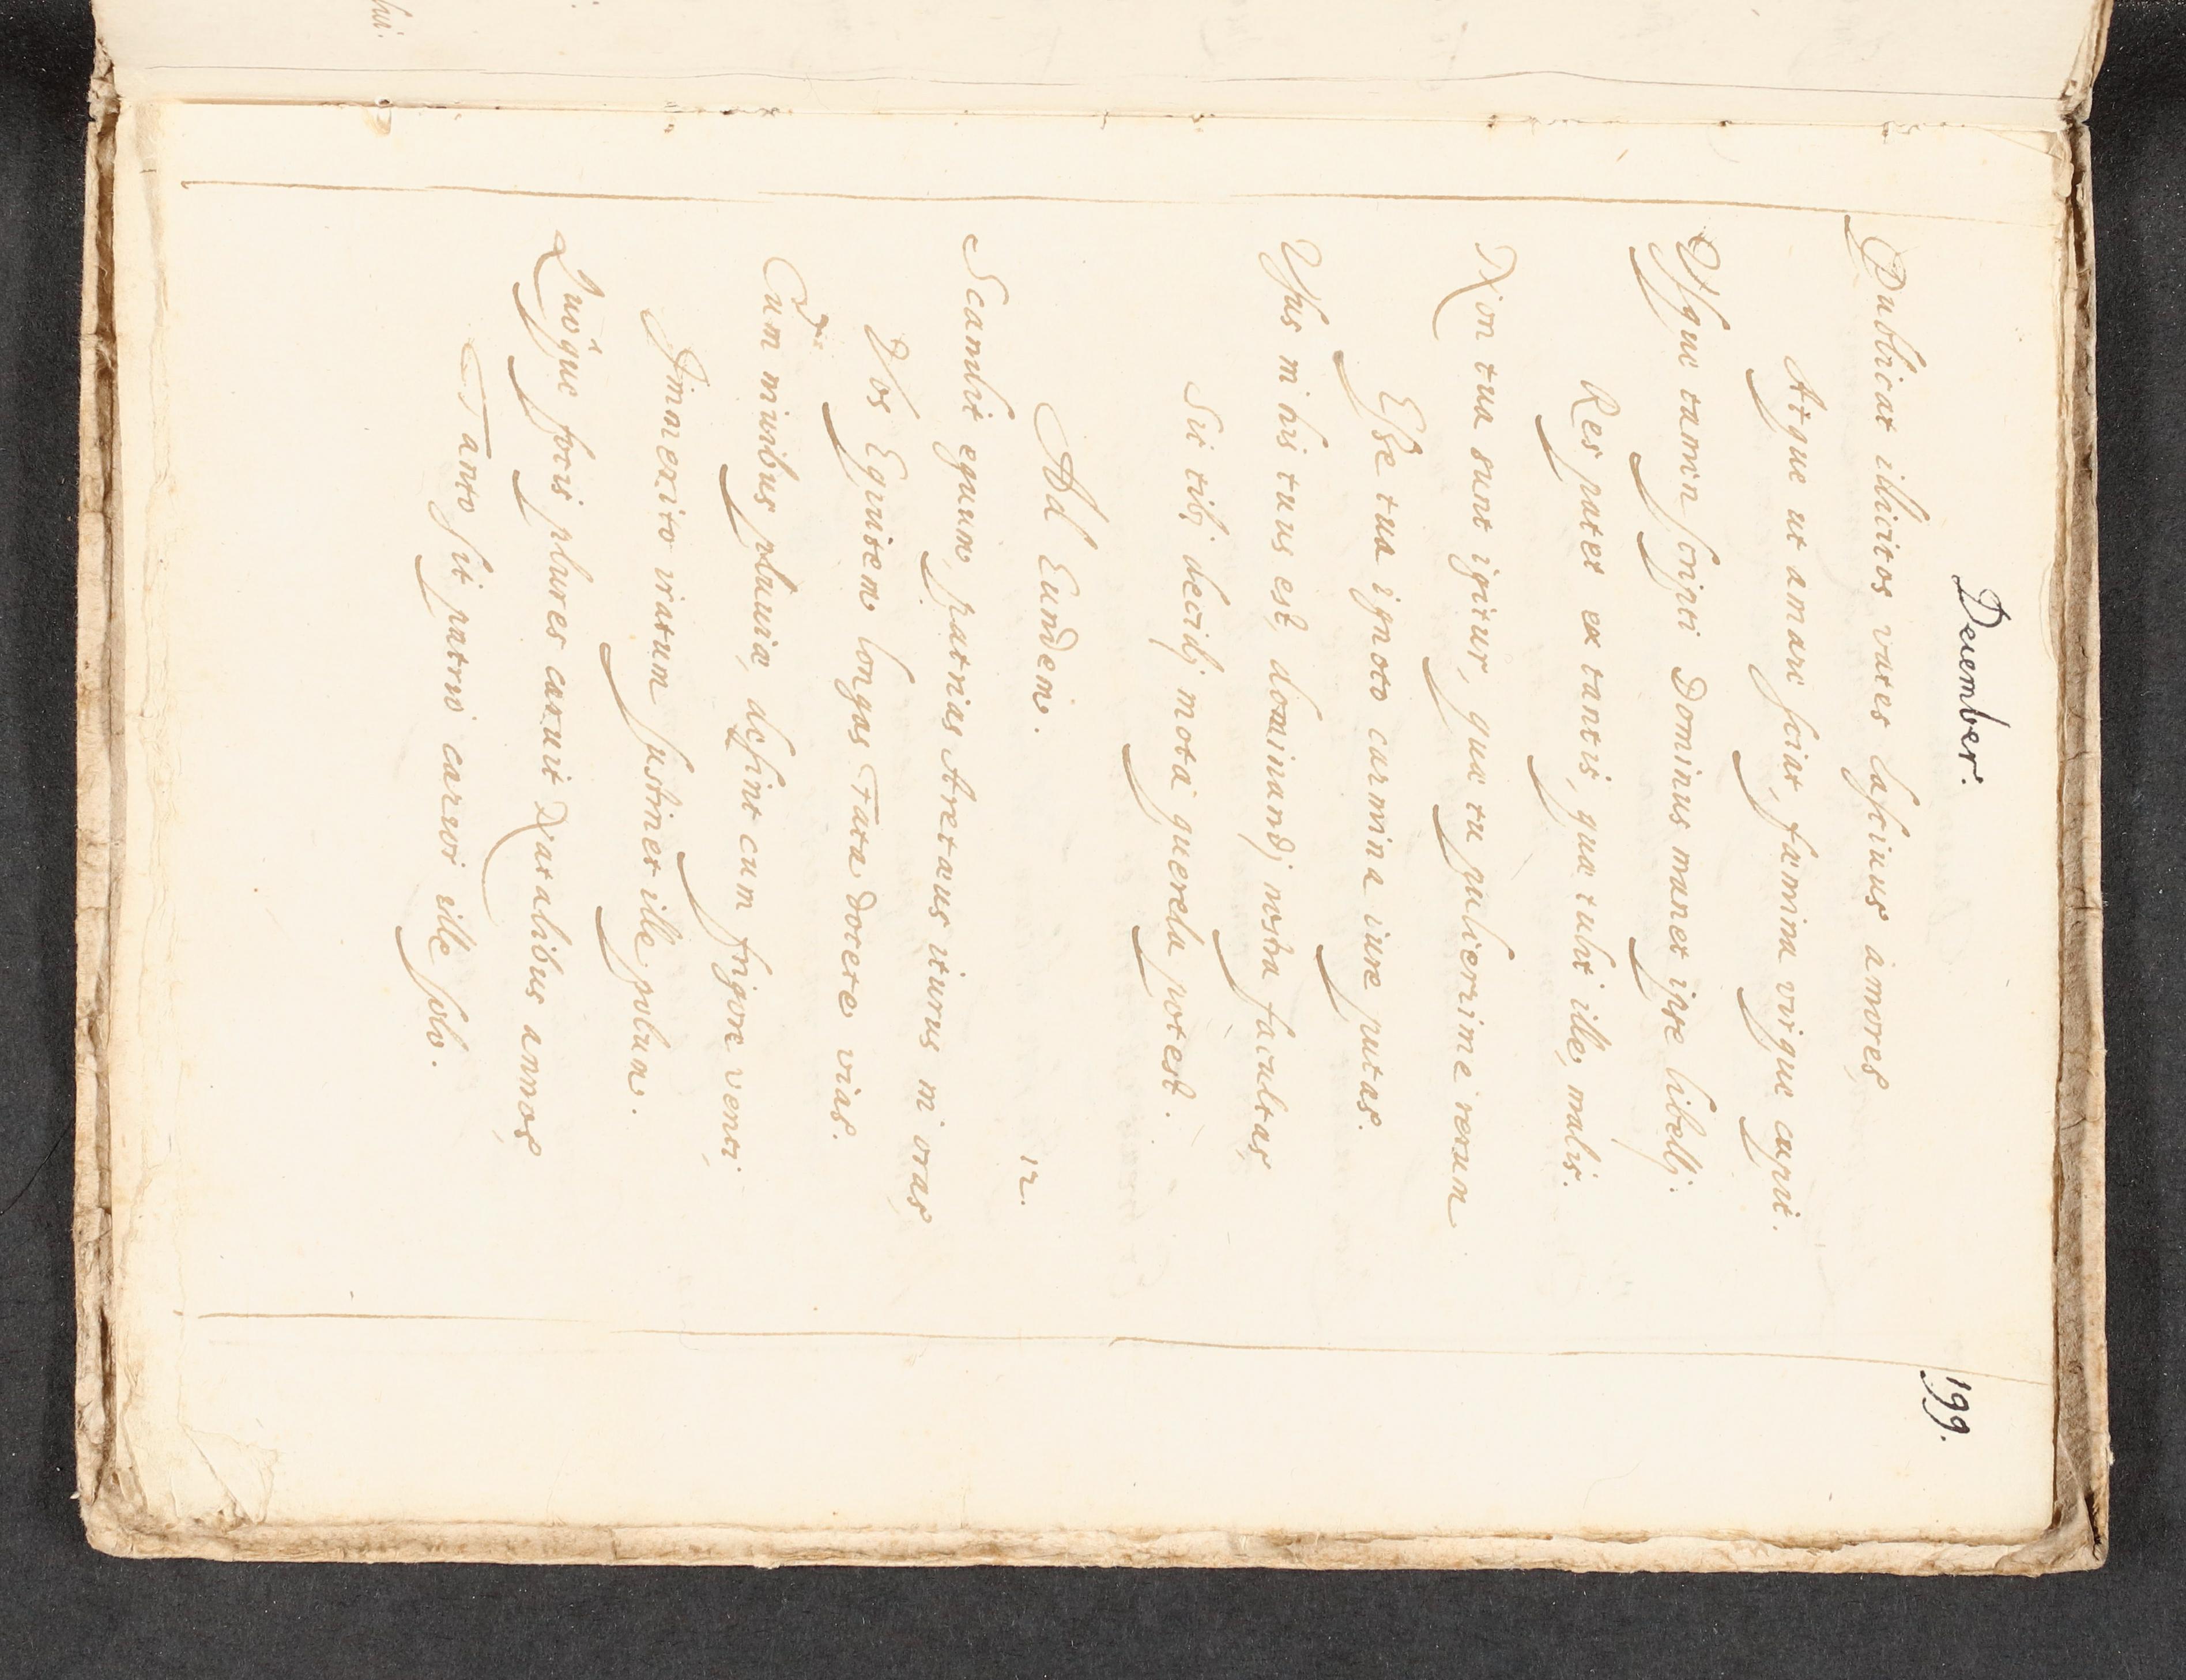 December.
199.
Publicat illicitos vates lasciuus amores,
Atque ut amare sciat, fæmina virque capit.
Usque tamen scripti Dominus manet ipse libelli.
Res patet ex tantis, quæ tulit ille, malis.
Non tua sunt igitur, quæ tu pulcerrime rerum
Esse tua ignoto carmina iure putas.
Usus in his tuus est, dominandj nostra facultas,
Sic tibj decidj mota querela potest.
Ad Eundem.
12.
Scandit equum, patrias Aretæus iturus in oras,
Vos Equitem longas Fata docete vias.
Cum niuibus pluuiæ, desint cum frigore venti,
Immerito iratum sustinet ille polum.
Quóque focis plures caruit Natalibus annos,
Tanto sit patrio carior ille solo.